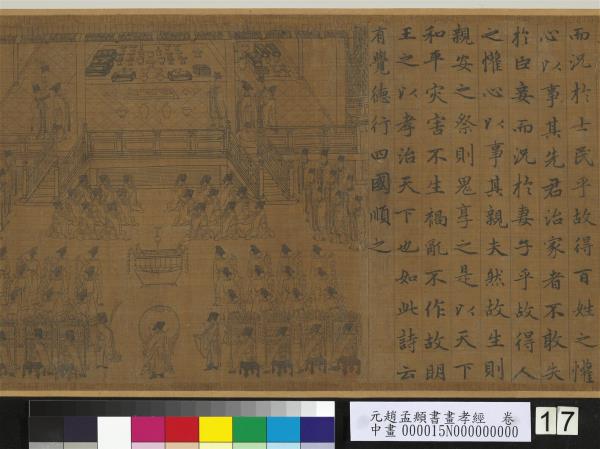 而況於士民乎故得百姓之懽
心以事其先君治家者不敢失
於臣妾而況於妻子乎故得人
之懽心以事其親夫然故生則
親安之祭則鬼享之是以天下
和平灾害不生禍亂不作故明
王之以孝治天下也如此詩云
有覺德行四國順之
元趙孟頫書畫孝經 卷
中畫 000015N000000000
17